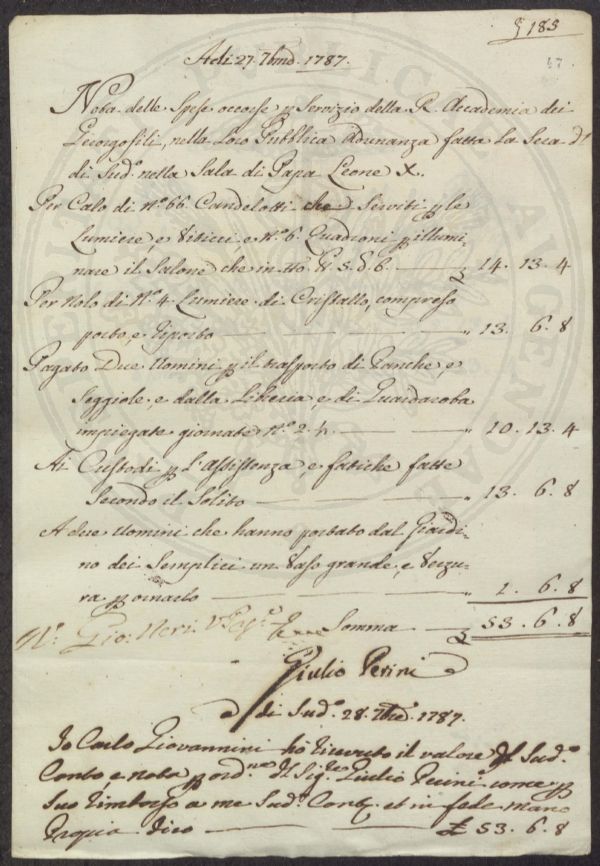 § 183
57
Adi 27. 7bre. 1787.
Nota delle Spese occorse p Servizio della R. Accademia dei
Georgofili, nella Loro Pubblica Adunanza fatta La Sera d.
di Sud.° nella Sala di Papa Leone X..
Per Calo di N.° 66. Candelotti che Serviti p le
Lumiere, e Viticci e N.° 6. Quadroni p illumi-
nare il Salone che in tto 5. 6. 14. 13. 4
Per Nolo di N.° 4 Lumiere di Cristallo, compreso
porto, e riporto " 13. 6. 8
Pagato Due Uomini p il trasporto di Panche, e
Seggiole, e dalla Libreria, e di Guardaroba
impiegate giornate N.° 2. " 10. 13. 4
Ai Custodi p L'Assistenza, e fatiche fatte
Secondo il Solito " 13. 6. 8
A due Uomini che hanno portato dal Giardi-
no dei Semplici un Vaso grande, e Verzu-
ra p ornarlo " 1. 6. 8
Gio: Neri Somma 53. 6. 8
Giulio Perini
a di Sud.° 28. 7bre. 1787.
Io Carlo Giovannini ho ricevuto il valore del Sud.°
Conto, e nota p ord.ne del Sig.re Giulio Perini come p
Suo rimborso a me Sud.° Cont. et in fede mano
Propria dico £ 53. 6. 8